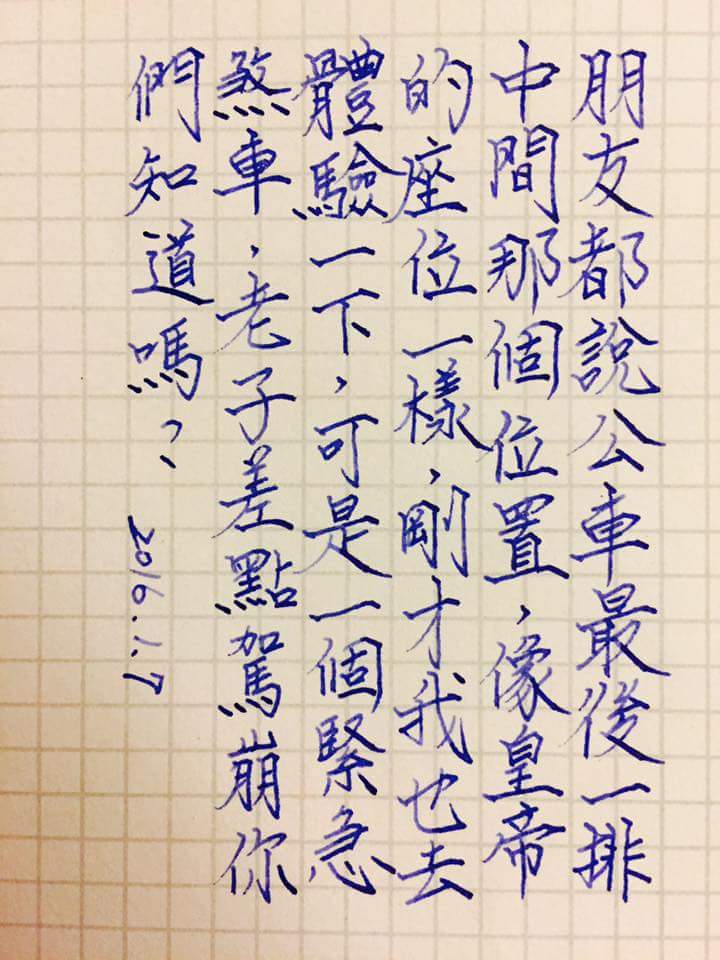 朋友都說公車最後一排
中間那個位置，像皇帝
的座位一樣，剛才我也去
體驗一下，可是一個緊急
煞車，老子差點駕崩你
們知道嗎？ 2016.1.7